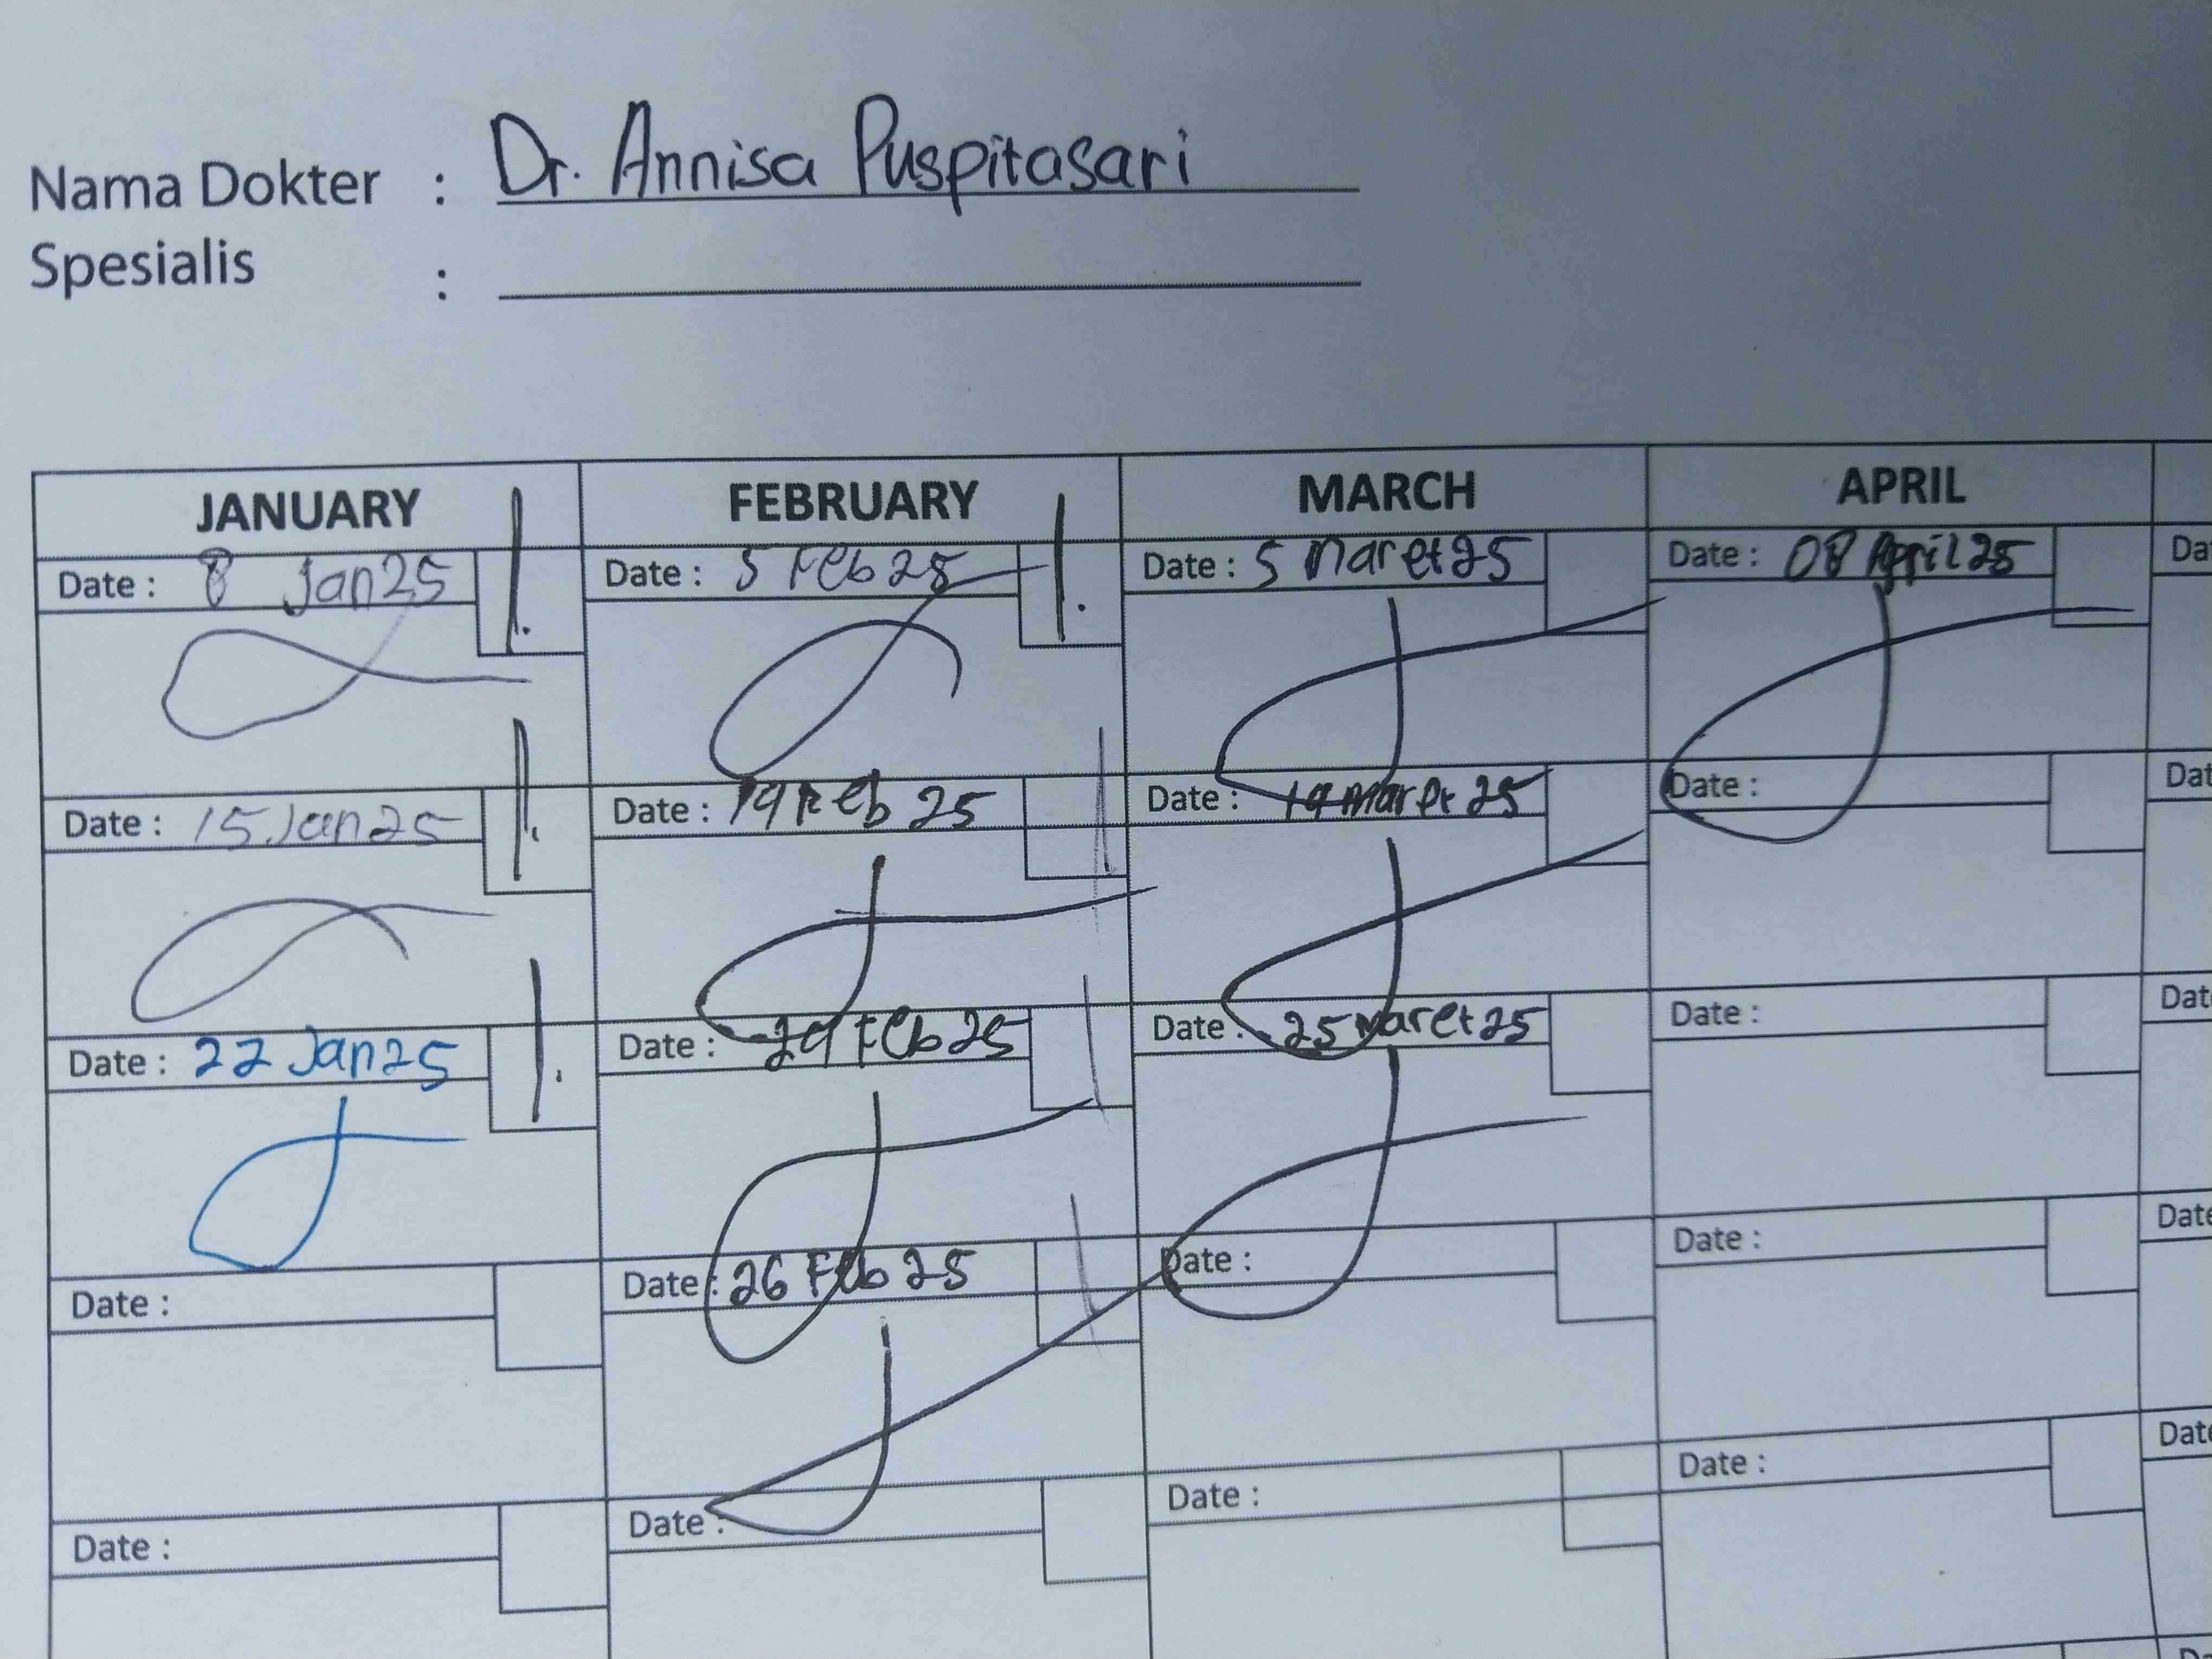 Nama Dokter : Dr. Annisa Puspitasari
Spesialis :
JANUARY FEBRUARY MARCH APRIL
Date : 8 Jan 25 Date : 5 Feb 25 Date : 5 Maret 25 Date : 08 April 25 Da
Date : 15 Jan 25 Date : 19 Feb 25 Date : 19 Maret 25 Date : Dat
Date : 22 Jan 25 Date : Feb 25 Date : 25 Maret 25 Date : Dat
Date : Date : 26 Feb 25 Date : Date : Date
Date : Date : Date : Date : Date